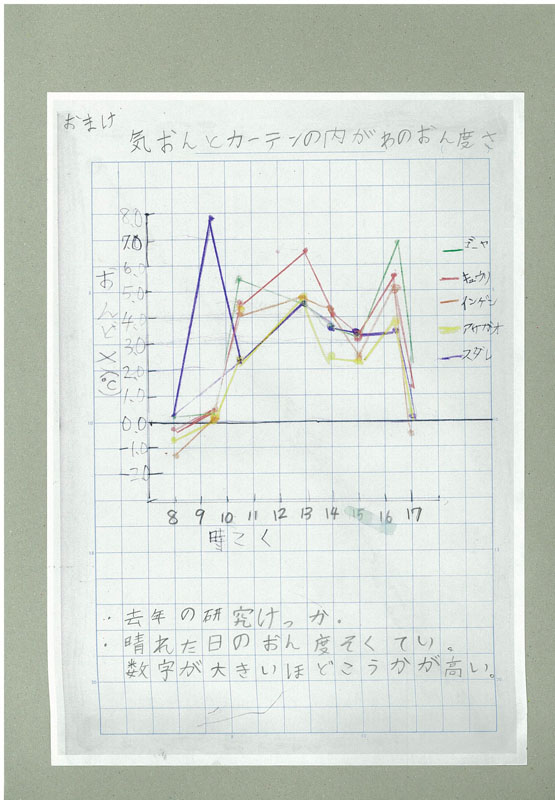 おまけ
気おんとカーテンの内がわのおん度さ
8.0
7.0
6.0
5.0
4.0
3.0
2.0
1.0
0.0
-1.0
-2.0
おんどメ(℃)
ゴーヤ
キュウリ
インゲン
アサガオ
スダレ
8 9 10 11 12 13 14 15 16 17
時こく
・去年の研究けっか.
・晴れた日のおん度そくてい。
数字が大きいほどこうかが高い。